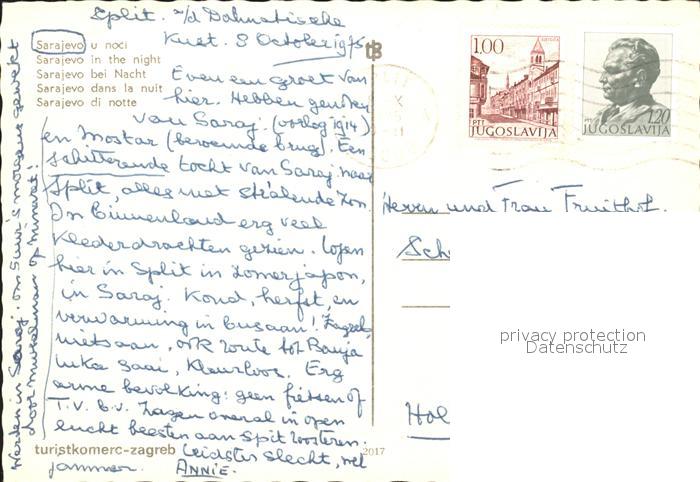 Split. a/d Dalmatische
Kust. 8 October 1975
Sarajevo u noći
Sarajevo in the night
Sarajevo bei Nacht
Sarajevo dans la nuit
Sarajevo di notte
Even een groet van
hier. Hebben genoten
van Saraj. (oorlog 1914)
en Mostar (beroemde brug). Een
schitterende tocht van Saraj. naar
Split, alles met stralende zon.
In Binnenland erg veel
klederdrachten gezien. Lopen
hier in Split in zomerjapon,
in Saraj. koud, herfst, en
verwarming in bus aan! Zagreb
niets aan, ook route tot Banja
luka saai, kleurloos. Erg
arme bevolking: geen fietsen of
T.V. b.v. Zagen overal in open
lucht beesten aan spit roosteren.
Leidster slecht, wel
jammer. ANNIE.
Werden in Saraj. om 5 uur 's morgens gewekt
door muzelman op minaret!
turistkomerc-zagreb
2017
1.00
PTT
JUGOSLAVIJA
1.20
PTT
JUGOSLAVIJA
Herrn und Frau Fruithof.
Sch
Hol
privacy protection
Datenschutz